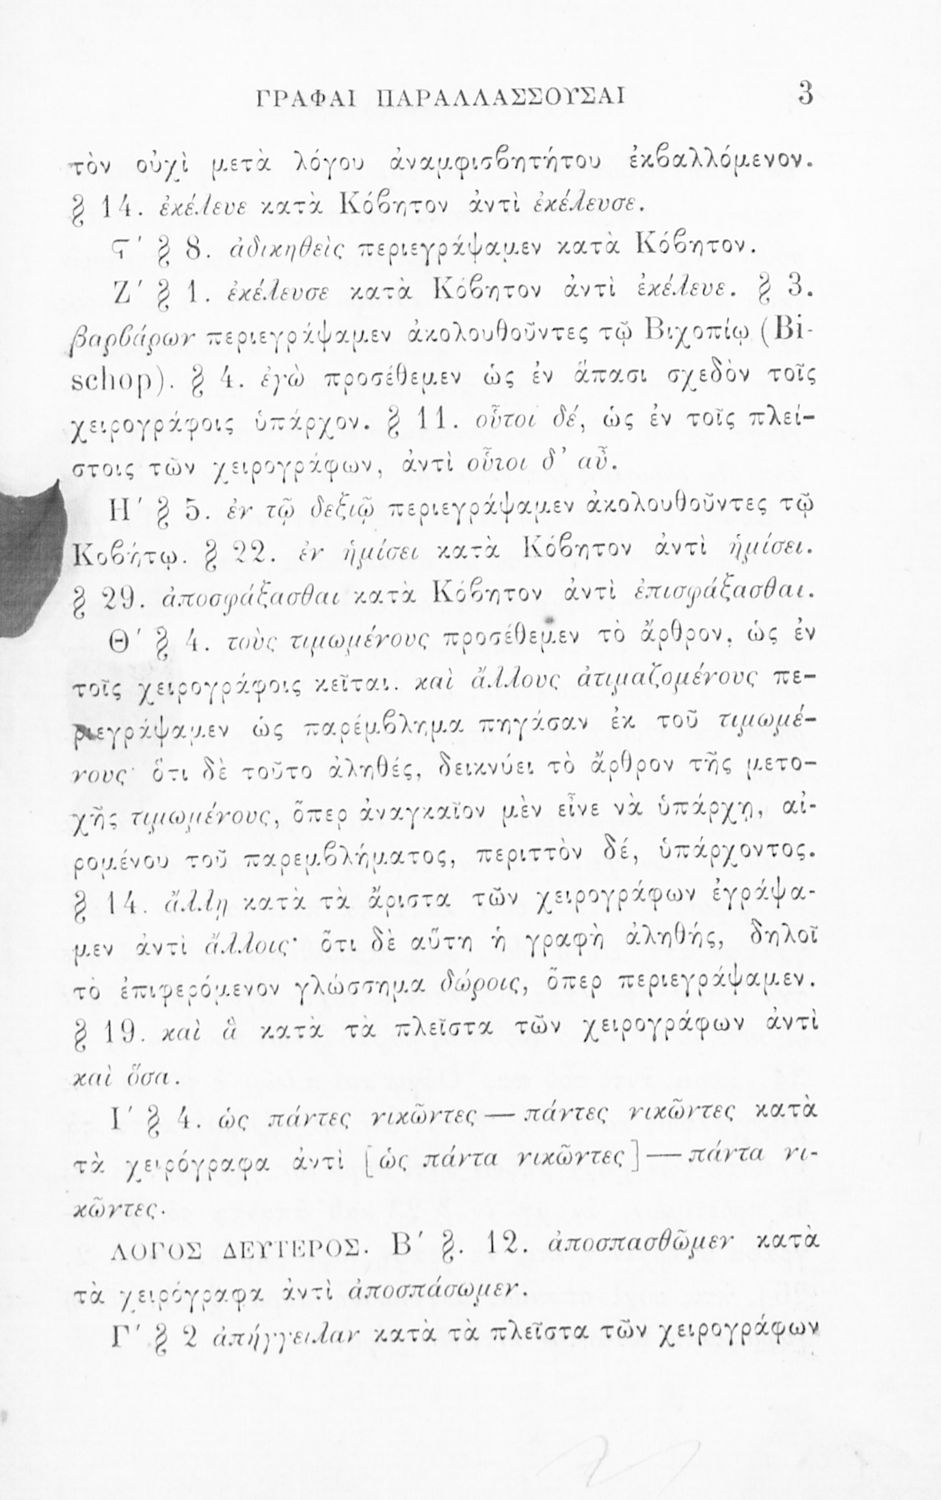 ΓΡΑΦΑΙ ΠΑΡΑΛΛΑΣΣΟΥΣΑΙ 3
τὸν οὐχὶ μετὰ λόγου ἀναμφισβητήτου ἐκβαλλόμενον.
§ 14. ἐκέλευε κατὰ Κόβητον ἀντὶ ἐκέλευσε.
Ϛ΄ § 8. ἀδικηθεὶς περιεγράψαμεν κατὰ Κόβητον.
Ζ΄ § 1. ἐκέλευσε κατὰ Κόβητον ἀντὶ ἐκέλευε. § 3.
βαρβάρων περιεγράψαμεν ἀκολουθοῦντες τῷ Βιχοπίῳ (Bi-
schop). § 4. ἐγὼ προσέθεμεν ὡς ἐν ἅπασι σχεδὸν τοῖς
χειρογράφοις ὑπάρχον. § 11. οὗτοι δέ, ὡς ἐν τοῖς πλεί-
στοις τῶν χειρογράφων, ἀντὶ οὗτοι δ’ αὖ.
Η΄ § 5. ἐν τῷ δεξιῷ περιεγράψαμεν ἀκολουθοῦντες τῷ
Κοβήτῳ. § 22. ἐν ἡμίσει κατὰ Κόβητον ἀντὶ ἡμίσει.
§ 29. ἀποσφάξασθαι κατὰ Κόβητον ἀντὶ ἐπισφάξασθαι.
Θ΄ § 4. τοὺς τιμωμένους προσέθεμεν τὸ ἄρθρον, ὡς ἐν
τοῖς χειρογράφοις κεῖται. καὶ ἄλλους ἀτιμαζομένους πε-
ριεγράψαμεν ὡς παρέμβλημα πηγάσαν ἐκ τοῦ τιμωμέ-
νους· ὅτι δὲ τοῦτο ἀληθές, δεικνύει τὸ ἄρθρον τῆς μετο-
χῆς τιμωμένους, ὅπερ ἀναγκαῖον μὲν εἶνε νὰ ὑπάρχῃ, αἰ-
ρομένου τοῦ παρεμβλήματος, περιττὸν δέ, ὑπάρχοντος.
§ 14. ἄλλῃ κατὰ τὰ ἄριστα τῶν χειρογράφων ἐγράψα-
μεν ἀντὶ ἄλλοις· ὅτι δὲ αὕτη ἡ γραφὴ ἀληθής, δηλοῖ
τὸ ἐπιφερόμενον γλώσσημα δώροις, ὅπερ περιεγράψαμεν.
§ 19. καὶ ἃ κατὰ τὰ πλεῖστα τῶν χειρογράφων ἀντὶ
καὶ ὅσα.
Ι΄ § 4. ὡς πάντες νικῶντες — πάντες νικῶντες κατὰ
τὰ χειρόγραφα ἀντὶ [ὡς πάντα νικῶντες] — πάντα νι-
κῶντες.
ΛΟΓΟΣ ΔΕΥΤΕΡΟΣ. Β΄ §. 12. ἀποσπασθῶμεν κατὰ
τὰ χειρόγραφα ἀντὶ ἀποσπάσωμεν.
Γ΄ § 2 ἀπήγγειλαν κατὰ τὰ πλεῖστα τῶν χειρογράφων